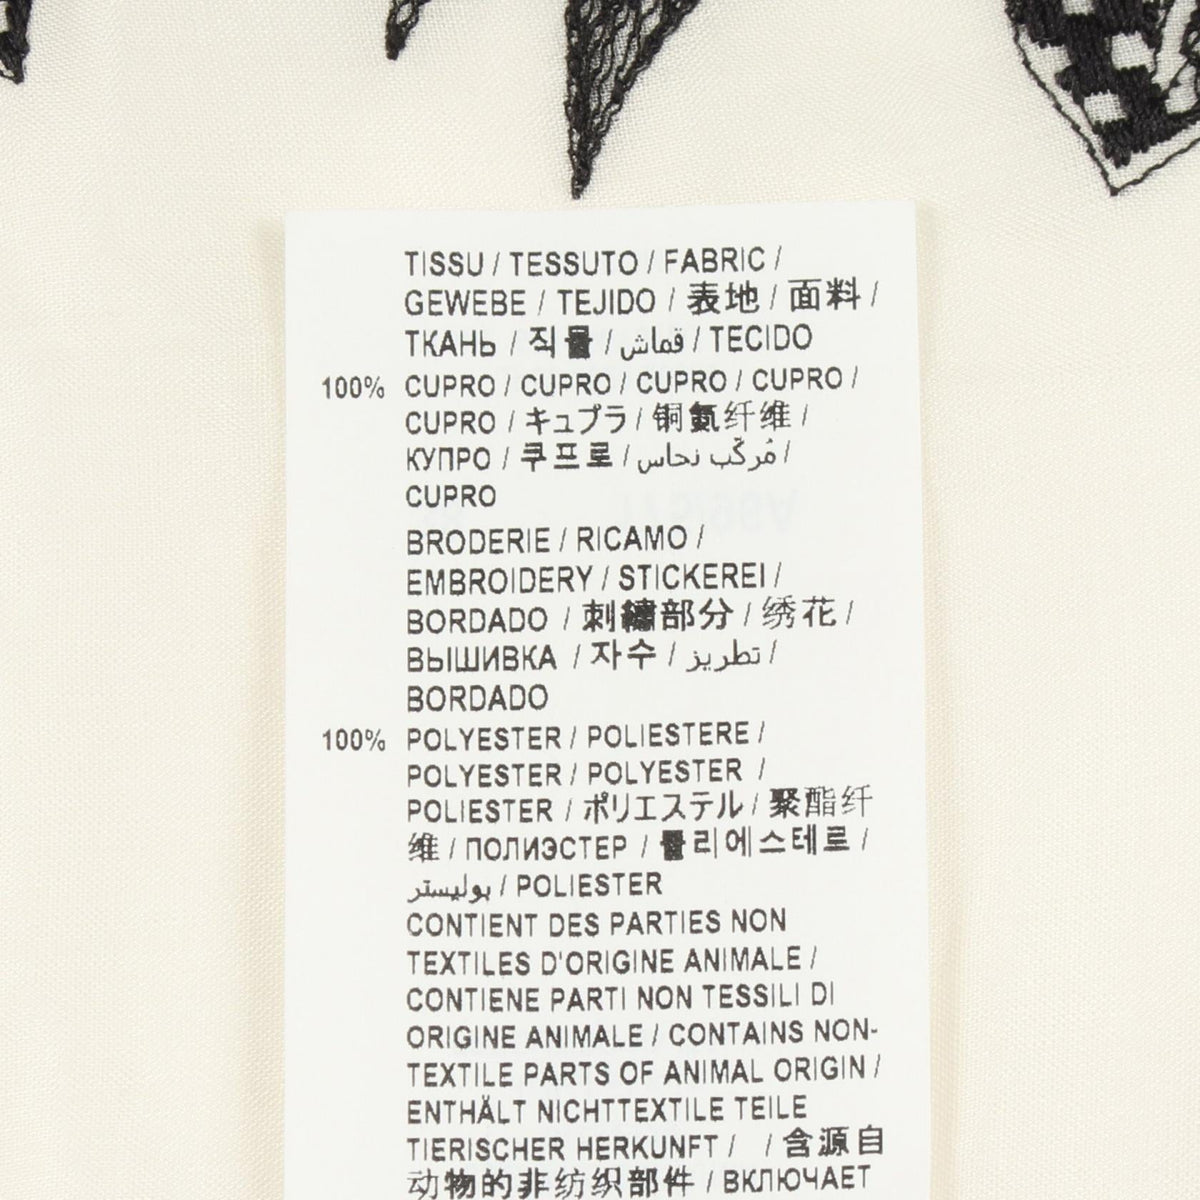 TISSU / TESSUTO / FABRIC /
GEWEBE / TEJIDO / 表地 / 面料 /
ТКАНЬ / 직물 / قماش / TECIDO
100% CUPRO / CUPRO / CUPRO / CUPRO /
CUPRO / キュプラ / 铜氨纤维 /
КУПРО / 쿠프로 / مُركّب نحاس /
CUPRO
BRODERIE / RICAMO /
EMBROIDERY / STICKEREI /
BORDADO / 刺繍部分 / 绣花 /
ВЫШИВКА / 자수 / تطريز /
BORDADO
100% POLYESTER / POLIESTERE /
POLYESTER / POLYESTER /
POLIESTER / ポリエステル / 聚酯纤
维 / ПОЛИЭСТЕР / 폴리에스테르 /
بوليستر / POLIESTER
CONTIENT DES PARTIES NON
TEXTILES D'ORIGINE ANIMALE /
CONTIENE PARTI NON TESSILI DI
ORIGINE ANIMALE / CONTAINS NON-
TEXTILE PARTS OF ANIMAL ORIGIN /
ENTHÄLT NICHTTEXTILE TEILE
TIERISCHER HERKUNFT / / 含源自
动物的非纺织部件 / ВКЛЮЧАЕТ